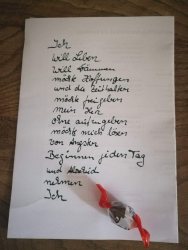 Ich
will Leben
will träumen
möcht Hoffnungen
und die
möcht freigeben
mein
ohne aufzugeben
möcht mich lösen
von Ängsten
Beginnen jeden Tag
und Abschied
nehmen
Ich